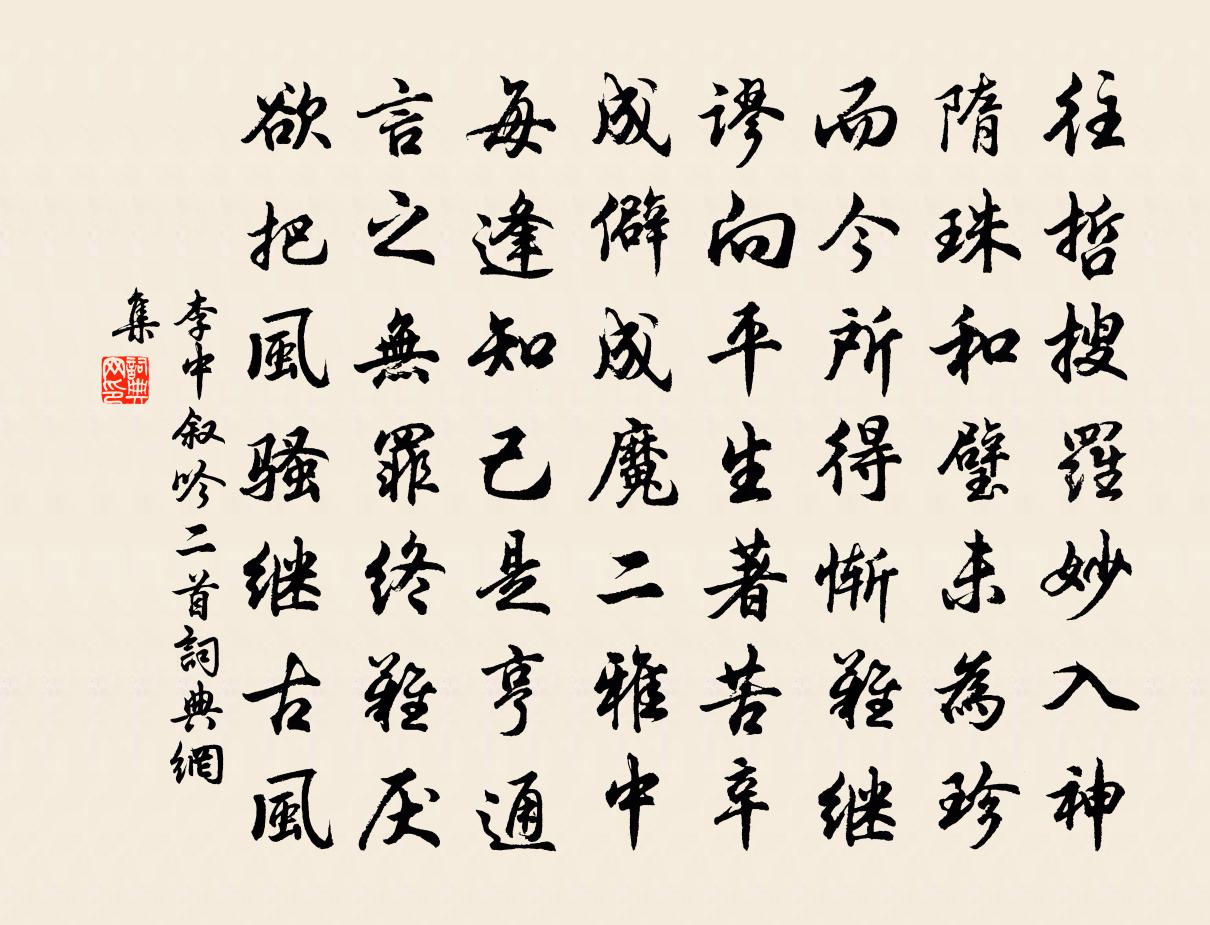 往哲搜羅妙入神
隋珠和璧未為珍
而今所得慚難继
谬向平生著苦辛
成僻成魔二雅中
每逢知己是亨通
言之無罪终難厌
欲把風骚继古風
李中叙吟二首詞典網
集
詞典
网印